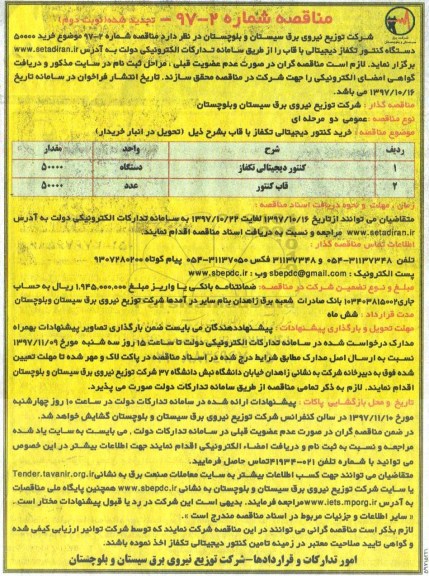 مناقصه شماره ۲-۹۷ - تجدید شده (نوبت دوم)
شرکت توزیع نیروی برق سیستان و بلوچستان در نظر دارد مناقصه شماره ۲-۹۷ موضوع خرید ۵۰۰۰۰
دستگاه کنتور تکفاز دیجیتالی با قاب را از طریق سامانه تدارکات الکترونیکی دولت به آدرس www.setadiran.ir
برگزار نماید. لازم است مناقصه گران در صورت عدم عضویت قبلی ، مراحل ثبت نام در سایت مذکور و دریافت
گواهی امضای الکترونیکی را جهت شرکت در مناقصه محقق سازند. تاریخ انتشار فراخوان در سامانه تاریخ
۱۳۹۷/۱۰/۱۶ می باشد.
مناقصه گذار : شرکت توزیع نیروی برق سیستان وبلوچستان
نوع مناقصه : عمومی دو مرحله ای
موضوع مناقصه : خرید کنتور دیجیتالی تکفاز با قاب بشرح ذیل (تحویل در انبار خریدار)
ردیف شرح واحد مقدار
۱ کنتور دیجیتالی تکفاز دستگاه ۵۰۰۰۰
۲ قاب کنتور عدد ۵۰۰۰۰
زمان ، مهلت و نحوه دریافت اسناد مناقصه :
متقاضیان می توانند ازتاریخ ۱۳۹۷/۱۰/۱۶ لغایت ۱۳۹۷/۱۰/۲۲ به سامانه تدارکات الکترونیکی دولت به آدرس
www.setadiran.ir مراجعه و نسبت به دریافت اسناد مناقصه اقدام نمایند.
اطلاعات تماس مناقصه گذار :
تلفن ۳۱۱۳۷۳۴۸-۰۵۴ و ۳۱۱۳۷۳۴۸ فکس ۳۱۱۳۷۰۵۰-۰۵۴ پیام کوتاه ۹۳۰۷۲۸۰۲۰۰
پست الکترونیک : sbepdc@gmail.com وب : www.sbepdc.ir
مبلغ و نوع تضمین شرکت در مناقصه: ضمانتنامه بانکی یا واریز مبلغ ۱,۹۴۵,۰۰۰,۰۰۰ ریال به حساب
جاری ۰۱۰۳۴۰۳۸۱۵۰۰۲ بانک صادرات شعبه برق زاهدان بنام سایر درآمدها شرکت توزیع نیروی برق سیستان وبلوچستان
مدت قرارداد : شش ماه
مهلت تحویل و بارگذاری پیشنهادات : پیشنهاددهندگان می بایست ضمن بارگذاری تصاویر پیشنهادات بهمراه
مدارک درخواست شده در سامانه تدارکات الکترونیکی دولت تا ساعت ۱۵ روز سه شنبه مورخ ۱۳۹۷/۱۱/۰۹
نسبت به ارسال اصل مدارک مطابق شرایط درج شده در اسناد مناقصه در پاکت لاک و مهر شده تا مهلت تعیین
شده فوق به دبیرخانه شرکت به نشانی زاهدان خیابان دانشگاه نبش دانشگاه ۳۷ شرکت توزیع نیروی برق سیستان و بلوچستان
اقدام نمایند. لازم به ذکر تمامی مناقصه از طریق سامانه تدارکات دولت صورت می پذیرد.
تاریخ و محل بازگشایی پاکات : پیشنهادات ارائه شده در سامانه تدارکات دولت در ساعت ۱۰ روز چهارشنبه
مورخ ۱۳۹۷/۱۱/۱۰ در سالن کنفرانس شرکت توزیع نیروی برق سیستان و بلوچستان گشایش خواهد شد.
در ضمن مناقصه گران در صورت عدم عضویت قبلی در سامانه تدارکات دولت ، می بایست به سایت یاد شده
مراجعه و نسبت به ثبت نام و دریافت امضاء الکترونیکی اقدام نمایند جهت اطلاعات بیشتر در این خصوص
می توانید با شماره تلفن ۰۲۱-۴۱۹۳۴ تماس حاصل فرمایید.
متقاضیان می توانند جهت کسب اطلاعات بیشتر به سایت معاملات صنعت برق به نشانی Tender.tavanir.org.ir
یا سایت شرکت توزیع نیروی برق سیستان و بلوچستان به نشانی www.sbepdc.ir همچنین پایگاه ملی مناقصات
به آدرس www.iets.mporg.ir مراجعه فرمایند. بدیهی است این شرکت در رد یا قبول پیشنهادات مختار است .
« سایر اطلاعات و جزئیات مربوط در اسناد مناقصه مندرج است »
لازم بذکر است مناقصه گرانی می توانند در این مناقصه شرکت نمایند که توسط شرکت توانیر ارزیابی کیفی شده
و گواهی تایید صلاحیت معتبر در زمینه تامین کنتور دیجیتالی تکفاز اخذ نموده باشند.
امور تدارکات و قراردادها-شرکت توزیع نیروی برق سیستان و بلوچستان